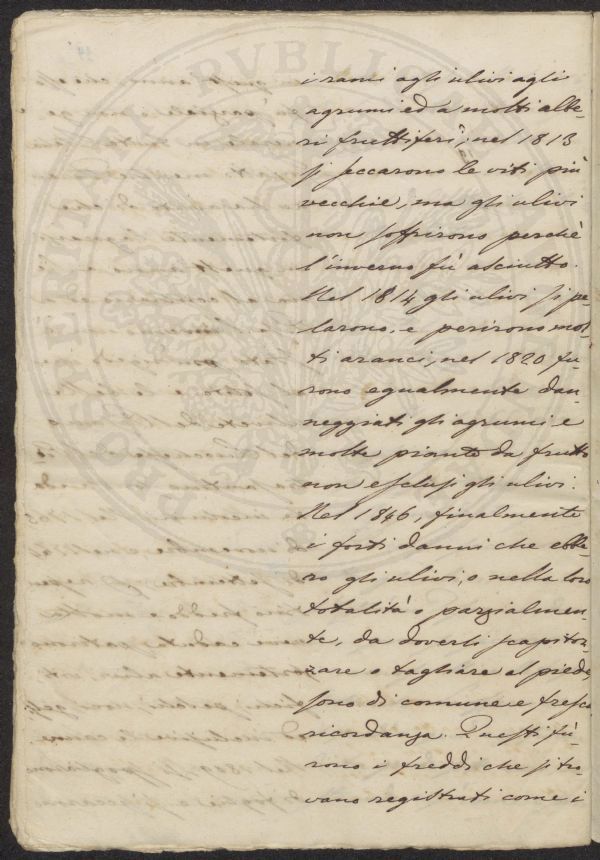 i rami agli ulivi agli
agrumi ed a molti albe-
ri fruttiferi; nel 1813
si seccarono le viti più
vecchie, ma gli ulivi
non soffrirono perchè
l'inverno fù asciutto.
Nel 1814 gli ulivi si pe-
larono, e perirono mol-
ti aranci; nel 1820 fu-
rono egualmente dan-
neggiati gli agrumi e
molte piante da frutto
non esclusi gli ulivi.
Nel 1846, finalmente
i forti danni che ebbe-
ro gli ulivi, o nella loro
totalità o parzialmen-
te, da doverli scapitoz-
zare o tagliare al piede,
sono di comune e fresca
ricordanza. Questi fù-
rono i freddi che si tro-
vano registrati come i
PROSPERITATI PUBLICAE